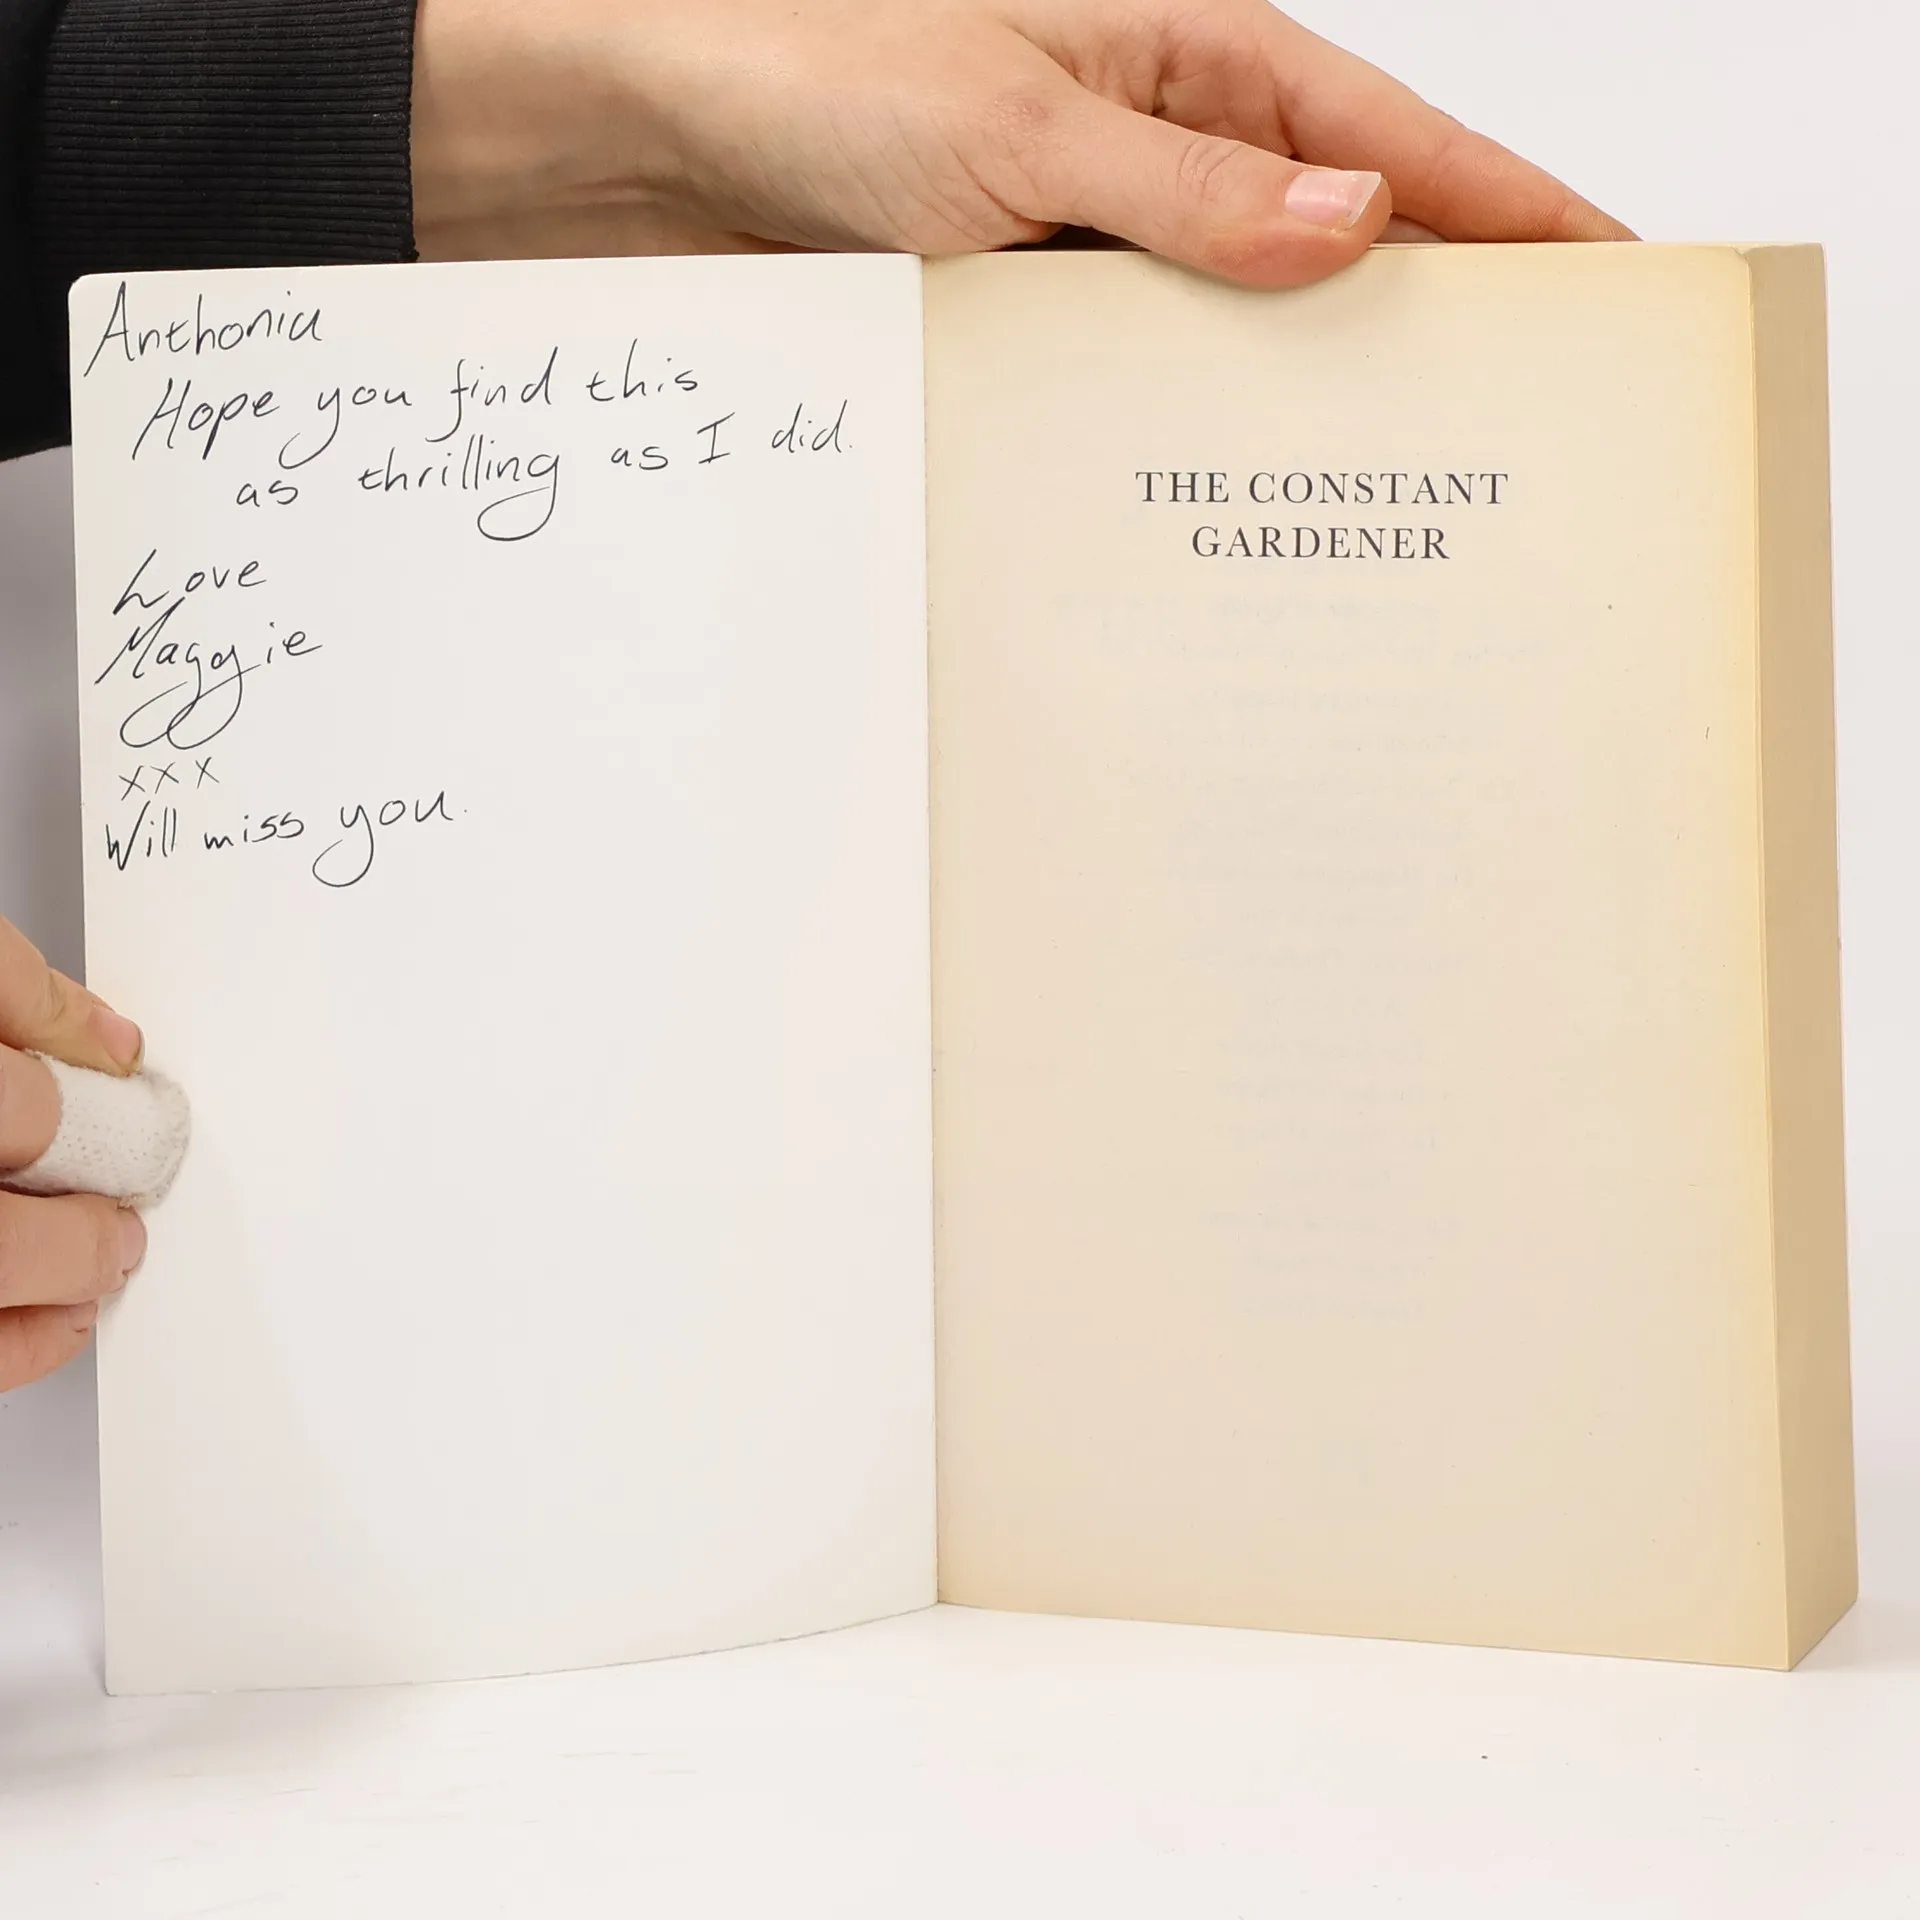 Anthonia
Hope you find this
as thrilling as I did.
Love
Maggie
xxx
Will miss you.
THE CONSTANT
GARDENER